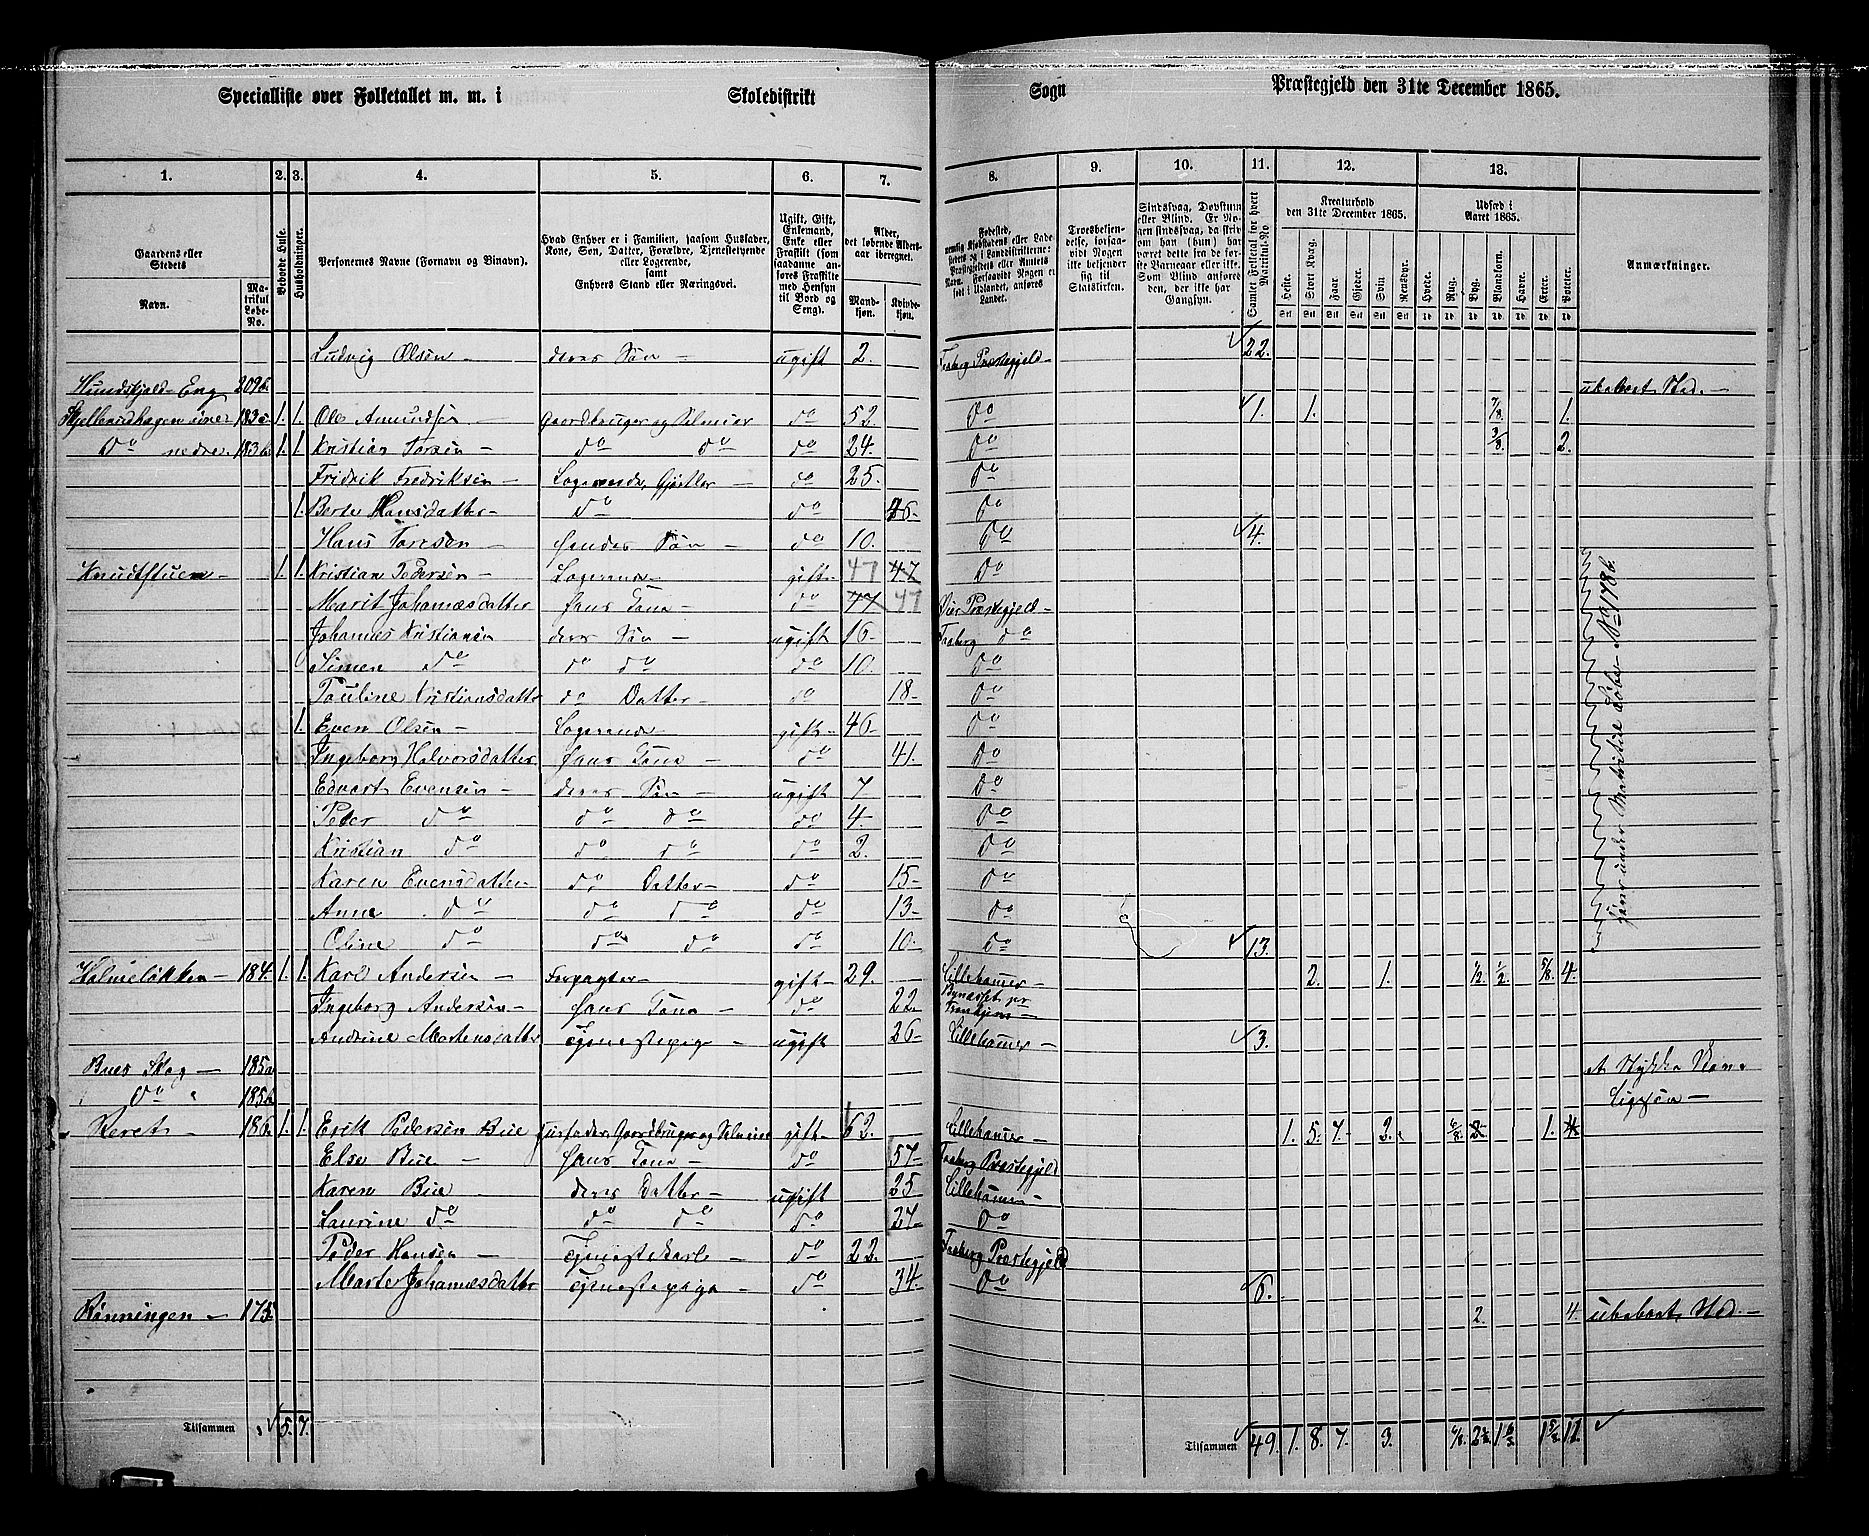 Specialliste over Folketallet m. m. i Skoledistrikt Sogn Præstegjeld den 31te December 1865.
1. 2. 3. 4. 5. 6. 7. 8. 9. 10. 11. 12. 13.
Gaardens eller Stedets Navn. Matrikul Løbe-No. Beboede Huse. Husholdninger. Personernes Navne (Fornavn og Binavn). Hvad Enhver er i Familien, saasom Husfader, Kone, Søn, Datter, Forældre, Tjenestetyende eller Logerende, samt Enhvers Stand eller Næringsvei. Ugift, Gift, Enkemand, Enke eller Fraskilt (som saadanne anføres Fraskilte med Hensyn til Bord og Seng). Alder, det løbende Alders-aar iberegnet. Mandkjøn. Kvindekjøn.
Fødested, Troesbekjendelse, forsaavidt Nogen ikke bekjender sig til Statskirken. Samlet Folketal for hvert Matrikul-No. Kreaturhold den 31te December 1865. Udsæd i Aaret 1865. Anmærkninger.
Heste. Stort Kvæg. Faar. Gjeder. Svin. Rensdyr. Hvede. Rug. Byg. Blandkorn. Havre. Erter. Poteter.
Ludvig Olsen - deres Søn - ugift 2. Faaberg Præstegjeld - 22.
Hundskjold-Eng 209b. ubeboet Sted. -
1. 1. Ole Amundsen Gaardbruger og Selveier do 52. do 1. 1. 7/8 1.
do nedre 183b 1. 1. Kristian Torsen - do do do 24. do 3/8 2.
Fridrik Fredriksen - Logerende, Gjørtler do 25. do
1. Berte Hansdatter - do do do
Hans Toresen - hendes Søn - do 10. do 4.
Knudtstuen - 1. 1. Kristian Pedersen - Logerende - gift - 47 47 do
Marit Johannesdatter hans Kone - do 47 47 Øier Præstegjeld -
Johannes Kristiansen deres Søn - ugift 16 - Faaberg do
Simen do do do do 10. do
Pauline Kristiansdatter do Datter - do 18 - do
1. Even Olsen - Logerende - gift - 46 - do
Ingeborg Halvorsdatter hans Kone - do 41. do
Edvart Evensen - deres Søn - ugift 7 do
Peder do do do do 4 - do
Kristian do do do do 2. do
Karen Evensdatter - do Datter - do 15 - do
Anne do do do do 13 - do
Oline do do do do 10 - do 13.
184. 1. 1. Karl Andersen - Forpagter gift - 29. Lillehamer - 2. 1. 1/2 1/2 5/8 4.
Ingeborg Andersen - hans Kone - do 22 -
Andrine Mortensdatter Tjenestepige - ugift 26 - Lillehamer - 3.
Bues Skog - 185a
do 185b
186. 1. 1. Erik Pedersen Bue Husfader, Gaardbruger og Selveier gift - 62. Lillehamer - 1. 5. 7. 2. 6/8 2 1. 4
Else Bue - hans Kone - do 57 - Faaberg Præstegjeld
Karen Bue deres Datter - ugift 25 - Lillehamer -
Laurine do do do do do
Peder Hansen - Tjenestekarl - do 22. Faaberg Præstegjeld
Marte Johannesdatter Tjenestepige - do 34. do 6.
Rønningen - 175. 2. 4. ubeboet Sted. -
Tilsammen 5. 7. Tilsammen 49. 1. 8. 7. 3. 6/8. 11.